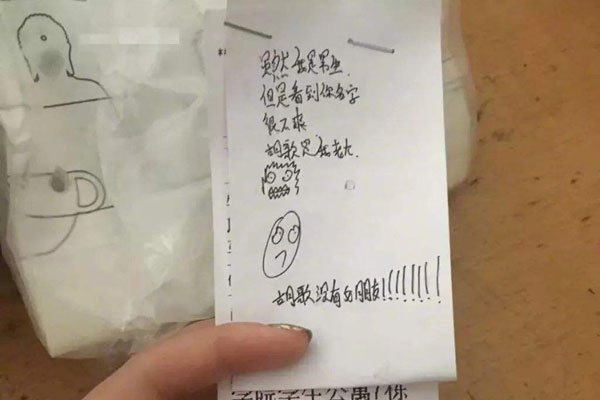 虽然我是男生.
但是看到你名字
很不爽
胡歌是我老
胡歌没有女朋友!!!!!!!!!
学院学生公寓